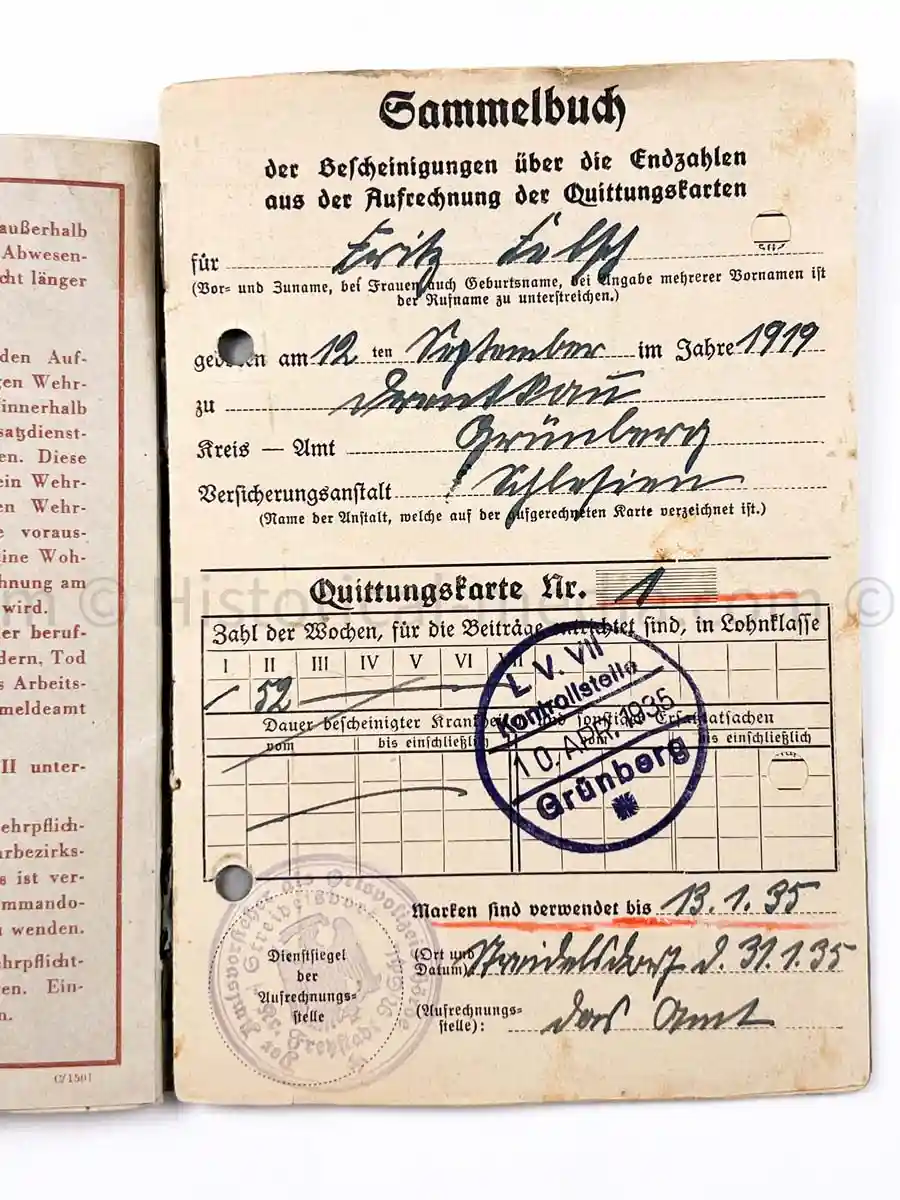 außerhalb
Abwesen-
cht länger
den Auf-
gen Wehr-
innerhalb
satzdienst-
en. Diese
ein Wehr-
en Wehr-
e voraus-
eine Woh-
hnung am
wird.
er beruf-
dern, Tod
s Arbeits-
meldeamt
II unter-
ehrpflich-
hrbezirks-
s ist ver-
ommando-
u wenden.
ehrpflicht-
en. Ein-
n.
C/1501
Sammelbuch
der Bescheinigungen über die Endzahlen
aus der Aufrechnung der Quittungskarten
für Fritz
(Vor- und Zuname, bei Frauen auch Geburtsname, bei Angabe mehrerer Vornamen ist
der Rufname zu unterstreichen.)
geboren am 12 ten September im Jahre 1919
zu Drentkau
Kreis — Amt Grünberg
Versicherungsanstalt Schlesien
(Name der Anstalt, welche auf der aufgerechneten Karte verzeichnet ist.)
Quittungskarte Nr. 1
Zahl der Wochen, für die Beiträge entrichtet sind, in Lohnklasse
I II III IV V VI VII
52
Dauer bescheinigter Krankheiten und sonstiger Ersatztatsachen
vom bis einschließlich vom bis einschließlich
L. V. VII
Kontrollstelle
10. APR. 1935
Grünberg
Marken sind verwendet bis 13.1.35
(Ort und
Datum) d. 31.1.35
(Aufrechnungs-
stelle): das Amt
Dienstsiegel
der
Aufrechnungs-
stelle
Der Amtsvorsteher als Ortspolizeibehörde
Kr. Freystadt
© Historical-media.com ©